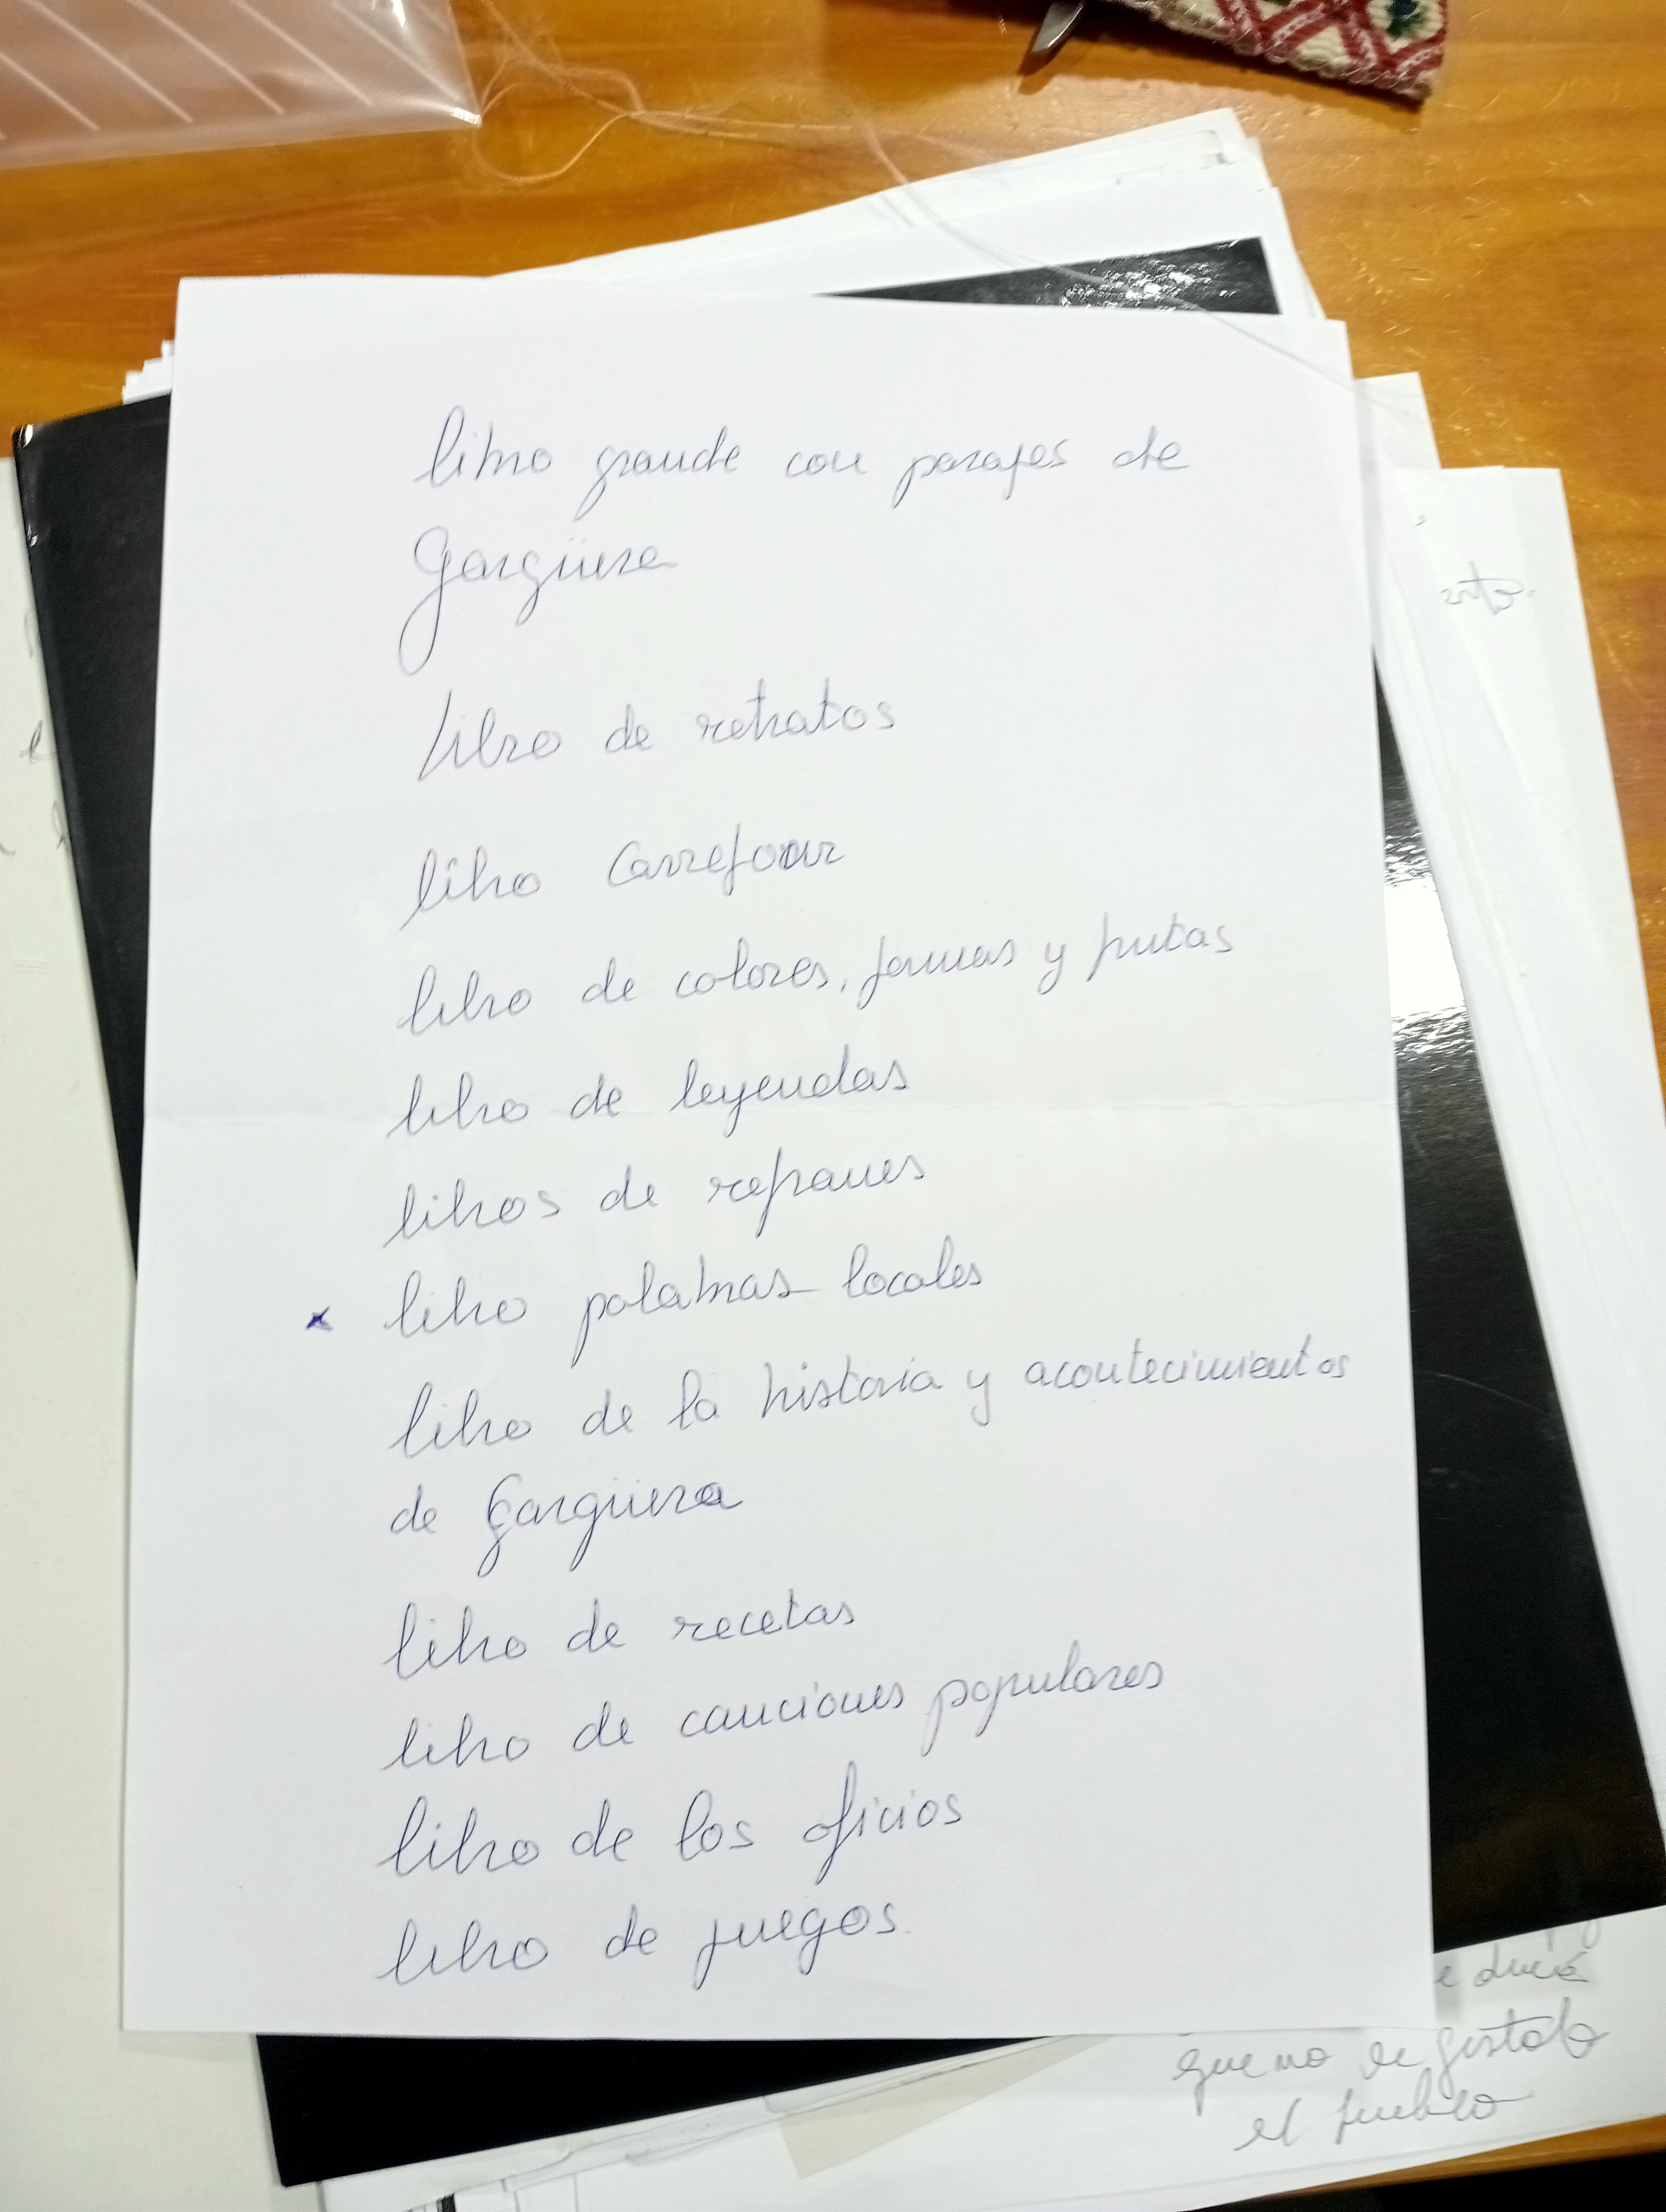 libro grande con parajes de
Gargüera
libro de retratos
libro Carrefour
libro de colores, formas y frutas
libro de leyendas
libros de refranes
x libro palabras locales
libro de la historia y acontecimientos
de Gargüera
libro de recetas
libro de canciones populares
libro de los oficios
libro de juegos.
que no le gustaba
el pueblo